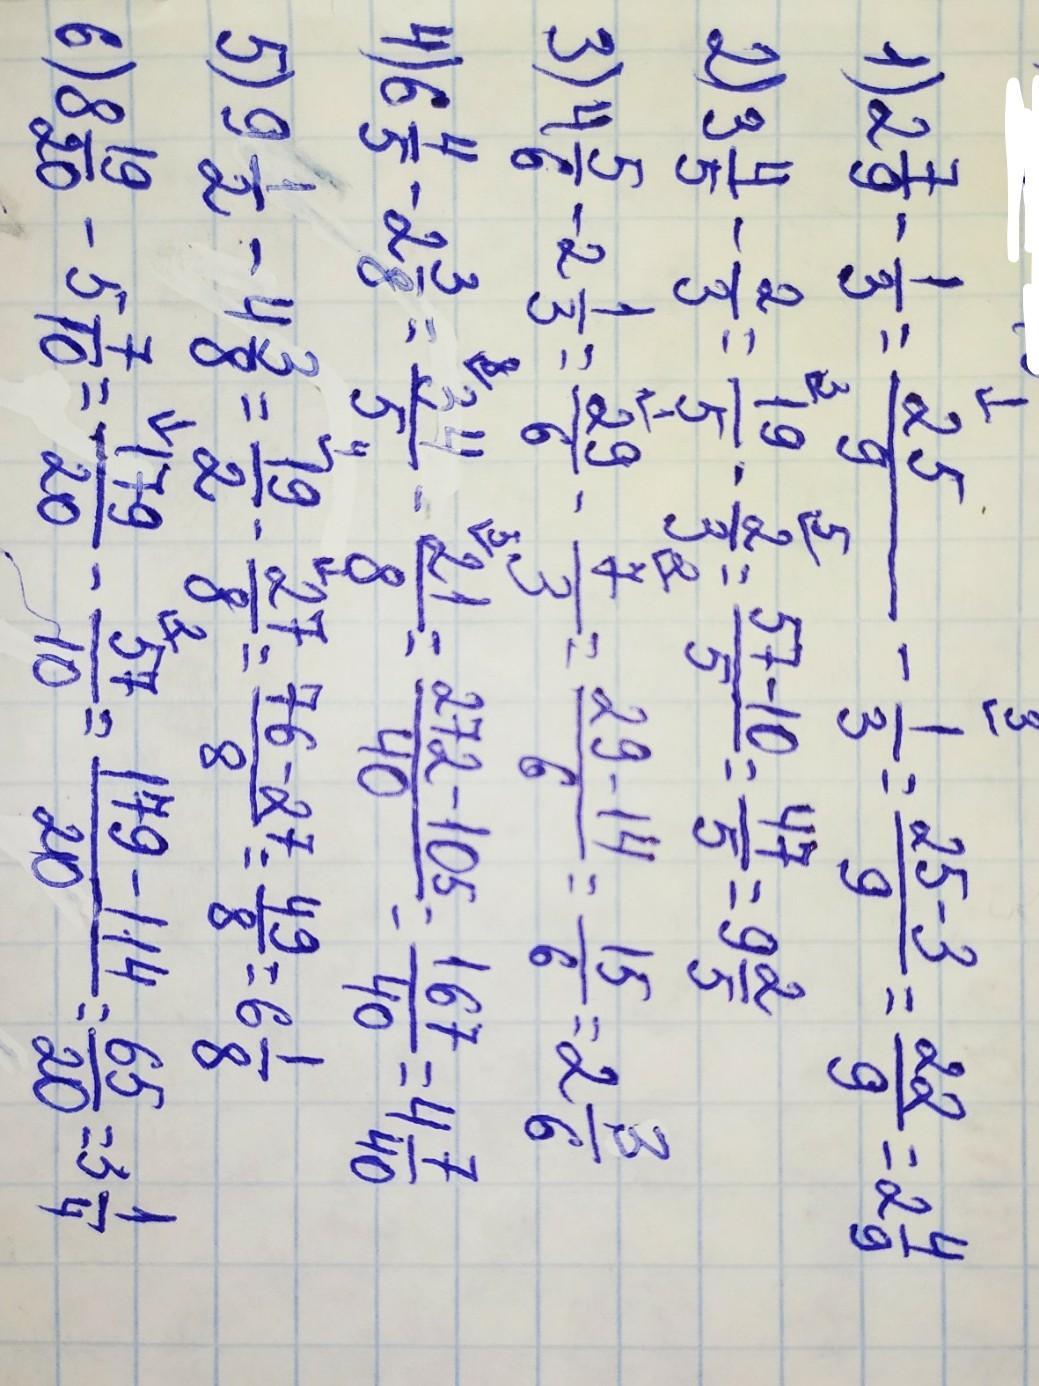 1) 2 7/9 - 1/3 = 25/9 - 1/3 = 25-3/9 = 22/9 = 2 4/9
2) 3 4/5 - 2/3 = 19/5 - 2/3 = 57-10/5 = 47/5 = 9 2/5
3) 4 5/6 - 2 1/3 = 29/6 - 7/3 = 29-14/6 = 15/6 = 2 3/6
4) 6 4/5 - 2 3/8 = 34/5 - 21/8 = 272-105/40 = 167/40 = 4 7/40
5) 9 1/2 - 4 3/8 = 19/2 - 27/8 = 76-27/8 = 49/8 = 6 1/8
6) 8 19/20 - 5 7/10 = 179/20 - 57/10 = 179-114/20 = 65/20 = 3 1/4